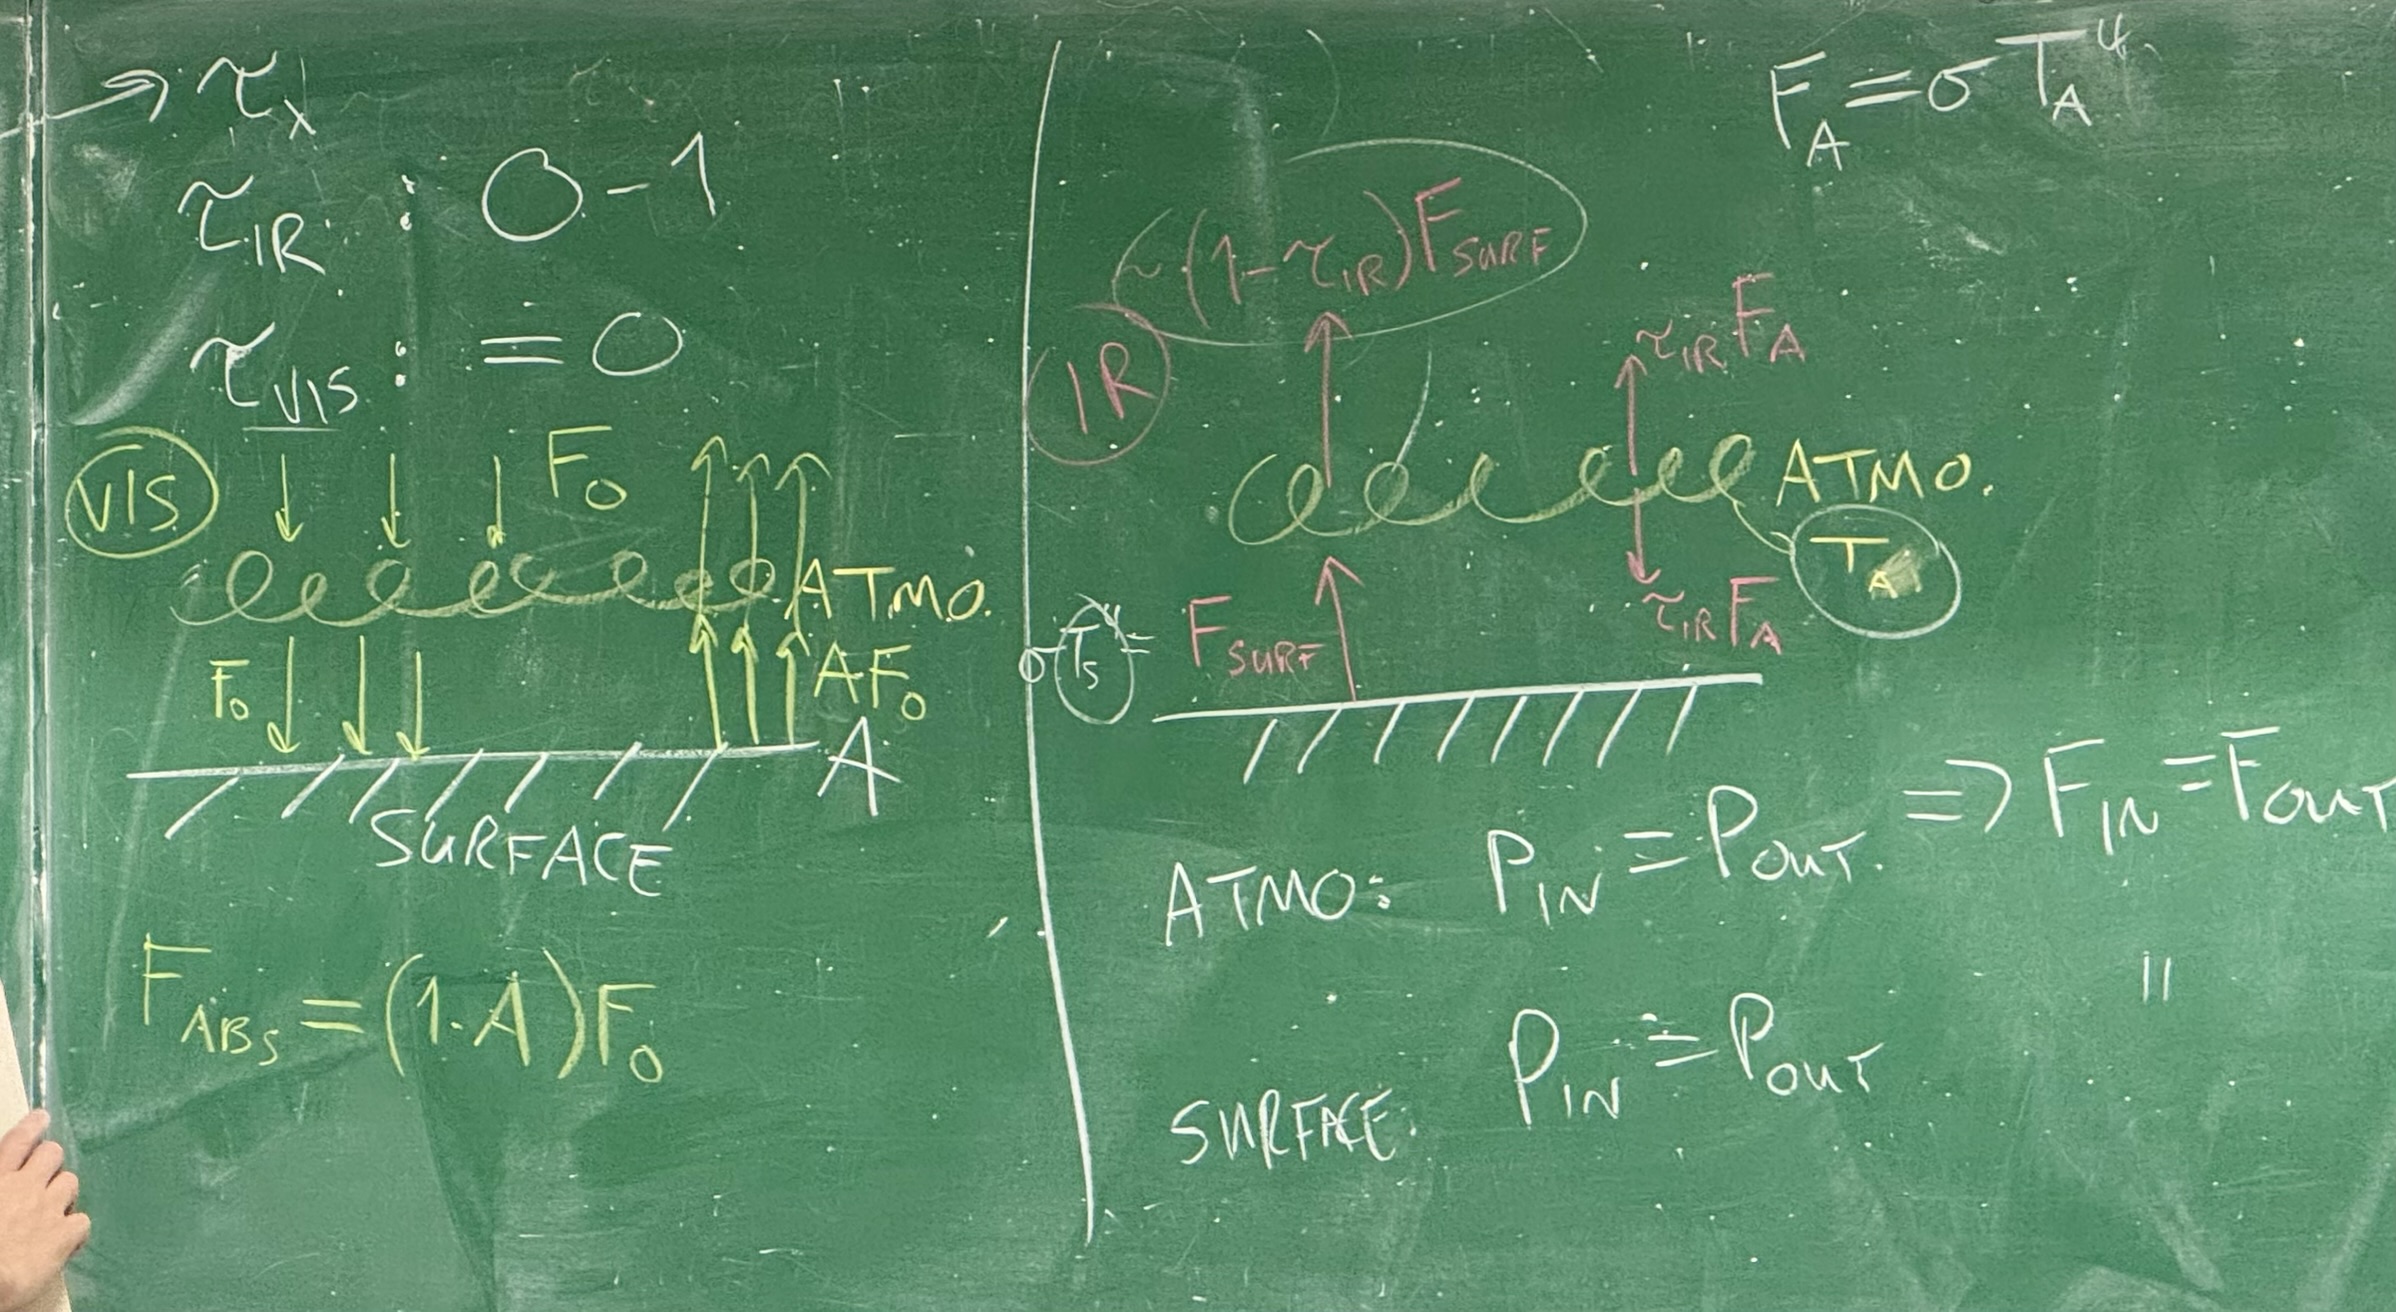 τλ
τIR : 0-1
τVIS : = 0
VIS
F0
ATMO.
F0
AF0
A
SURFACE
FABS = (1-A)F0
FA = σTA⁴
~(1-τIR)FSURF
IR
τIR FA
ATMO.
TA
σTs⁴ = FSURF
τIR FA
ATMO: PIN = POUT. ⇒ FIN = FOUT
SURFACE: PIN = POUT "